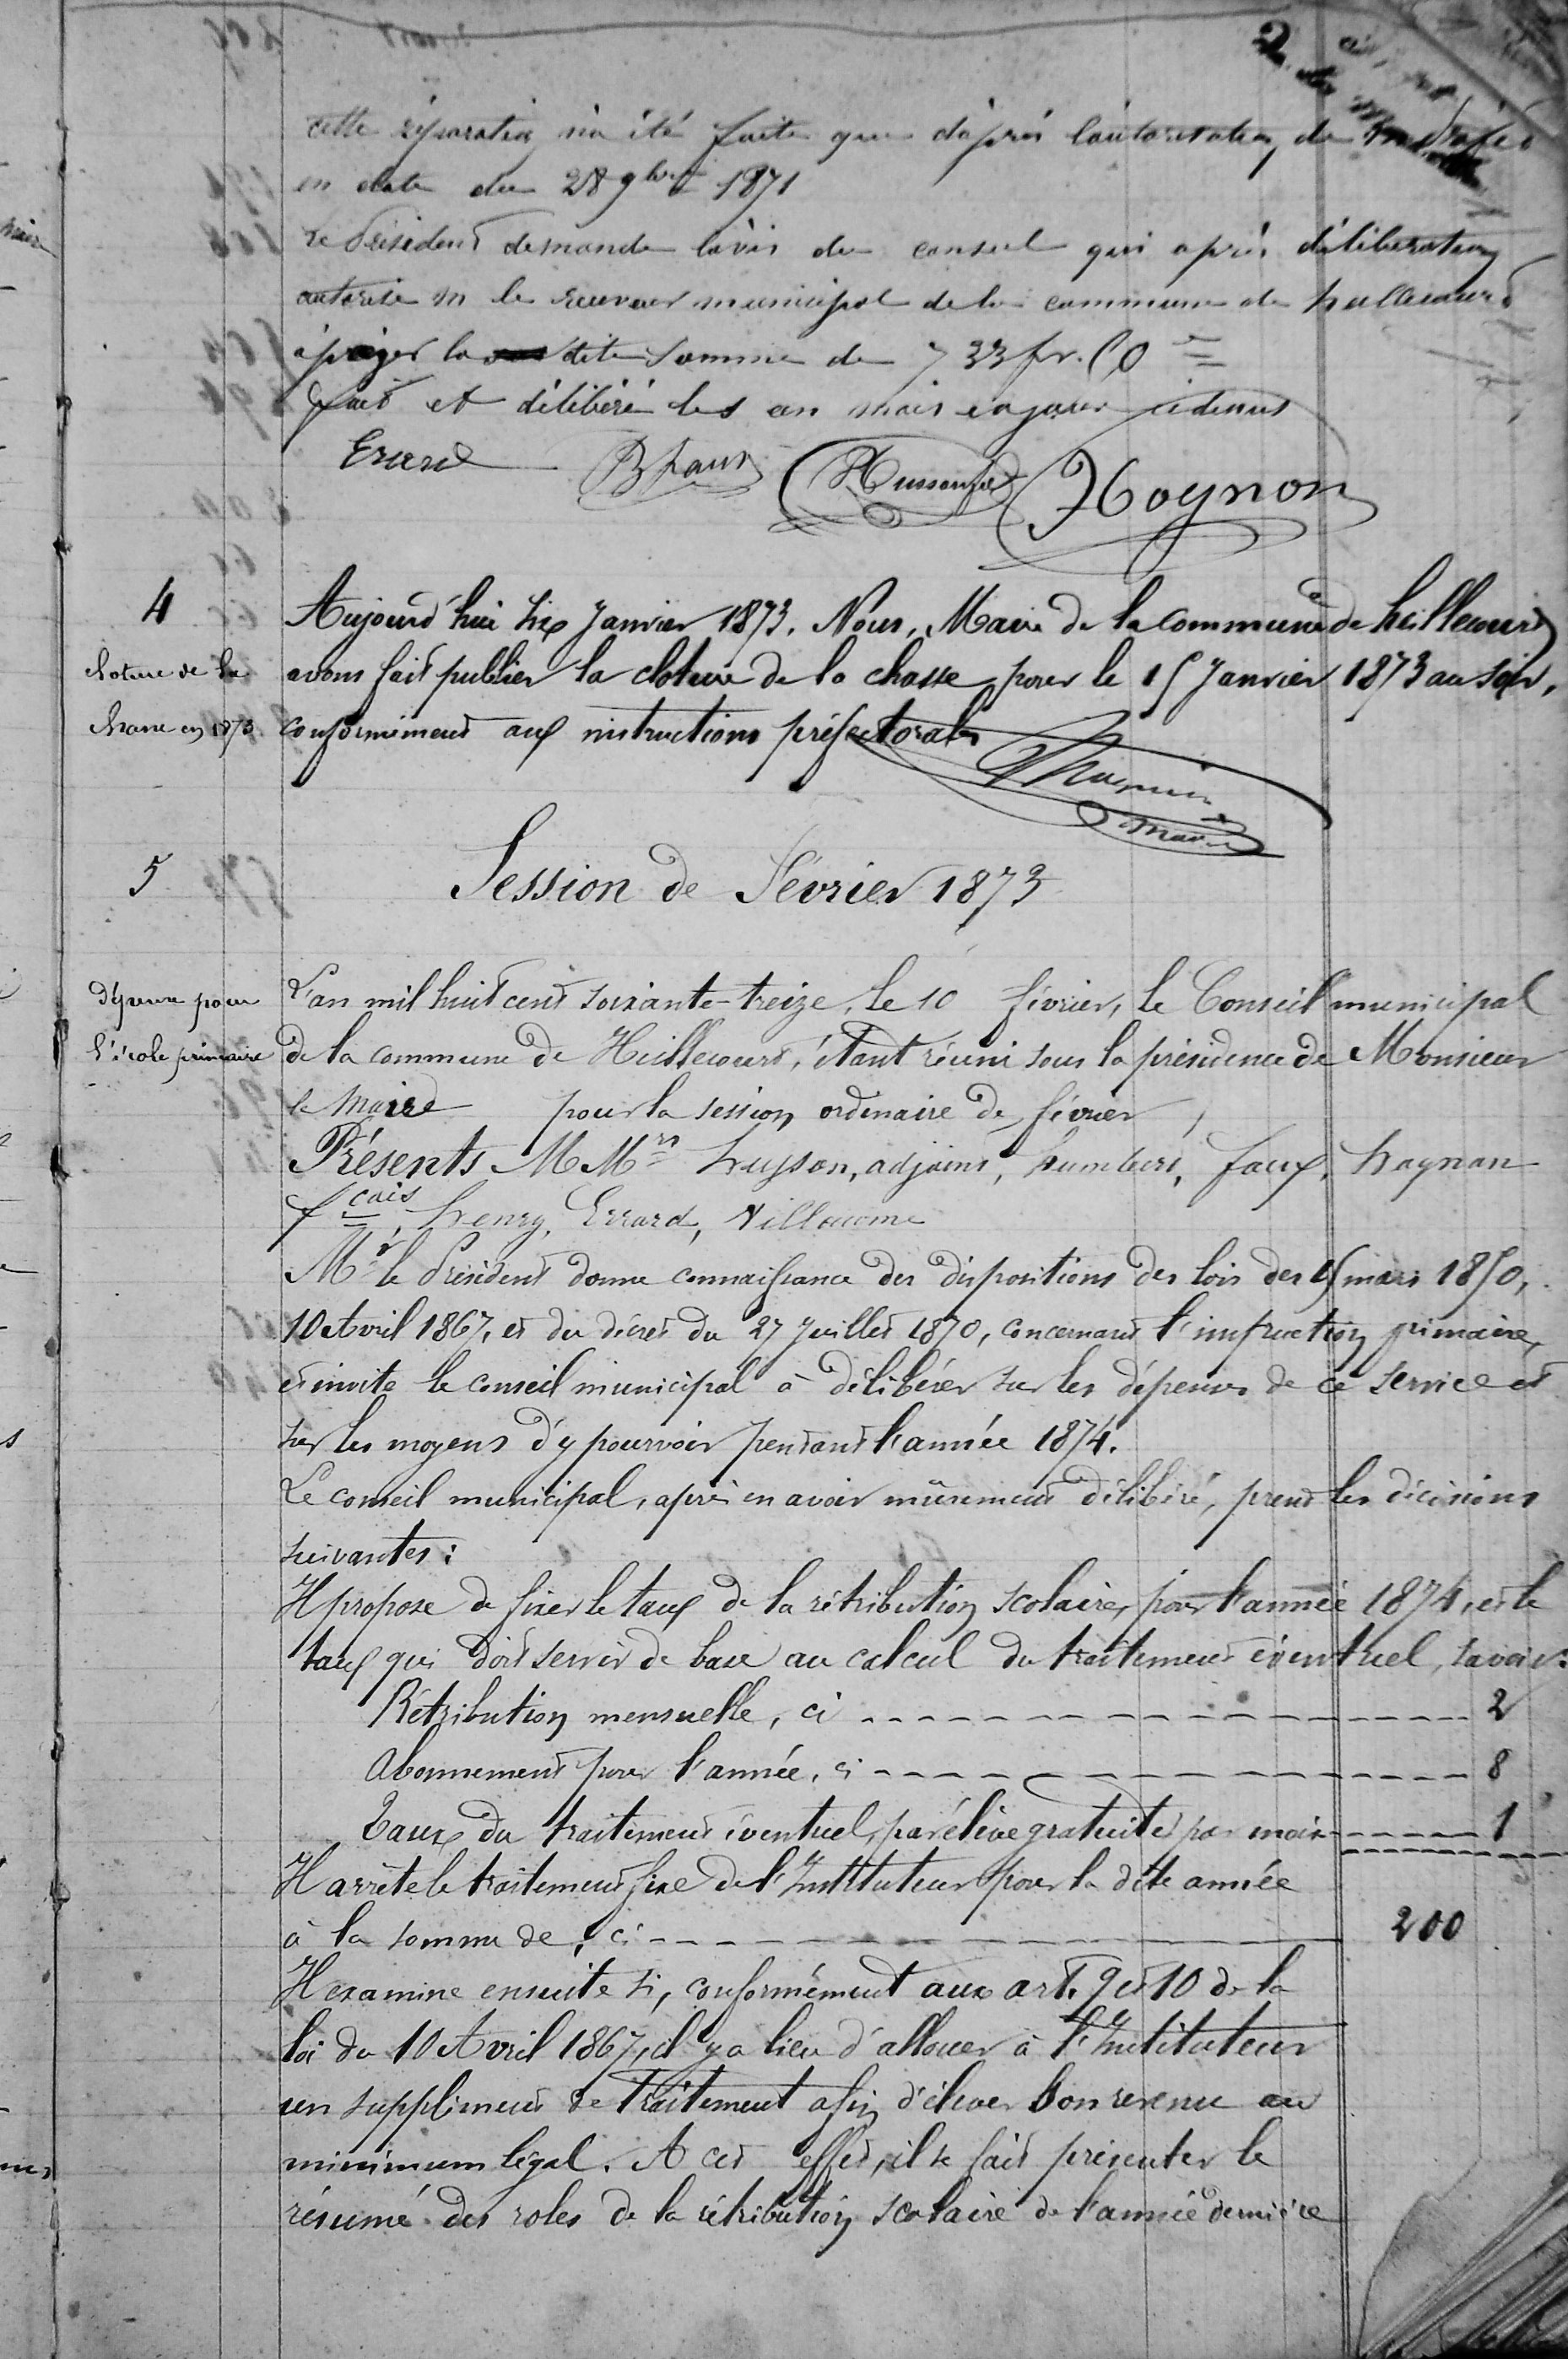 2
cette réparation n'a été faite que d'après l'autorisation de
en date du 28 9bre 1871
Le Président demande l'avis du conseil qui après délibération
autorise m le receveur municipal de la commune de heillecourt
à payer la dite somme de 733 fr. 50
fait et délibéré les an mois et jour ci dessus
Erard Hoynon
4
Aujourd'hui six Janvier 1873. Nous, Maire de la commune de heillecourt
cloture de la
avons fait publier la cloture de la chasse pour le 15 Janvier 1873 au soir,
chasse en 1873
conformément aux instructions préfectorales
maire
5
Session de Février 1873
dépense pour
L'an mil huit cent soixante-treize, le 10 février, le Conseil municipal
l'école primaire
de la commune de Heillecourt, étant réuni sous la présidence de Monsieur
le Maire pour la session ordinaire de février,
Présents MMrs huyson, adjoint, humbert, faux, hoynon
fcois, henry, Errard, Villaume
Mr le Président donne connaissance des dispositions des lois des 15 mars 1850,
10 Avril 1867, et du décret du 27 Juillet 1870, concernant l'instruction primaire,
et invite le conseil municipal à délibérer sur les dépenses de ce service et
sur les moyens d'y pourvoir pendant l'année 1874.
Le conseil municipal, après en avoir mûrement délibéré, prend les décisions
suivantes:
Il propose de fixer le taux de la rétribution scolaire, pour l'année 1874, et le
taux qui doit servir de base au calcul du traitement éventuel, savoir:
Rétribution mensuelle, ci 2
Abonnement pour l'année, ci 8
Taux du traitement éventuel, par élève gratuité par mois 1
Il arrête le traitement fixe de l'Instituteur pour la dite année
à la somme de, ci 200
Il examine ensuite si, conformément aux art. 9 et 10 de la
loi du 10 Avril 1867, il y a lieu d'allouer à l'Instituteur
un supplément de traitement afin d'élever son revenu au
minimum légal. A cet effet, il se fait présenter le
résumé des roles de la rétribution scolaire de l'année dernière